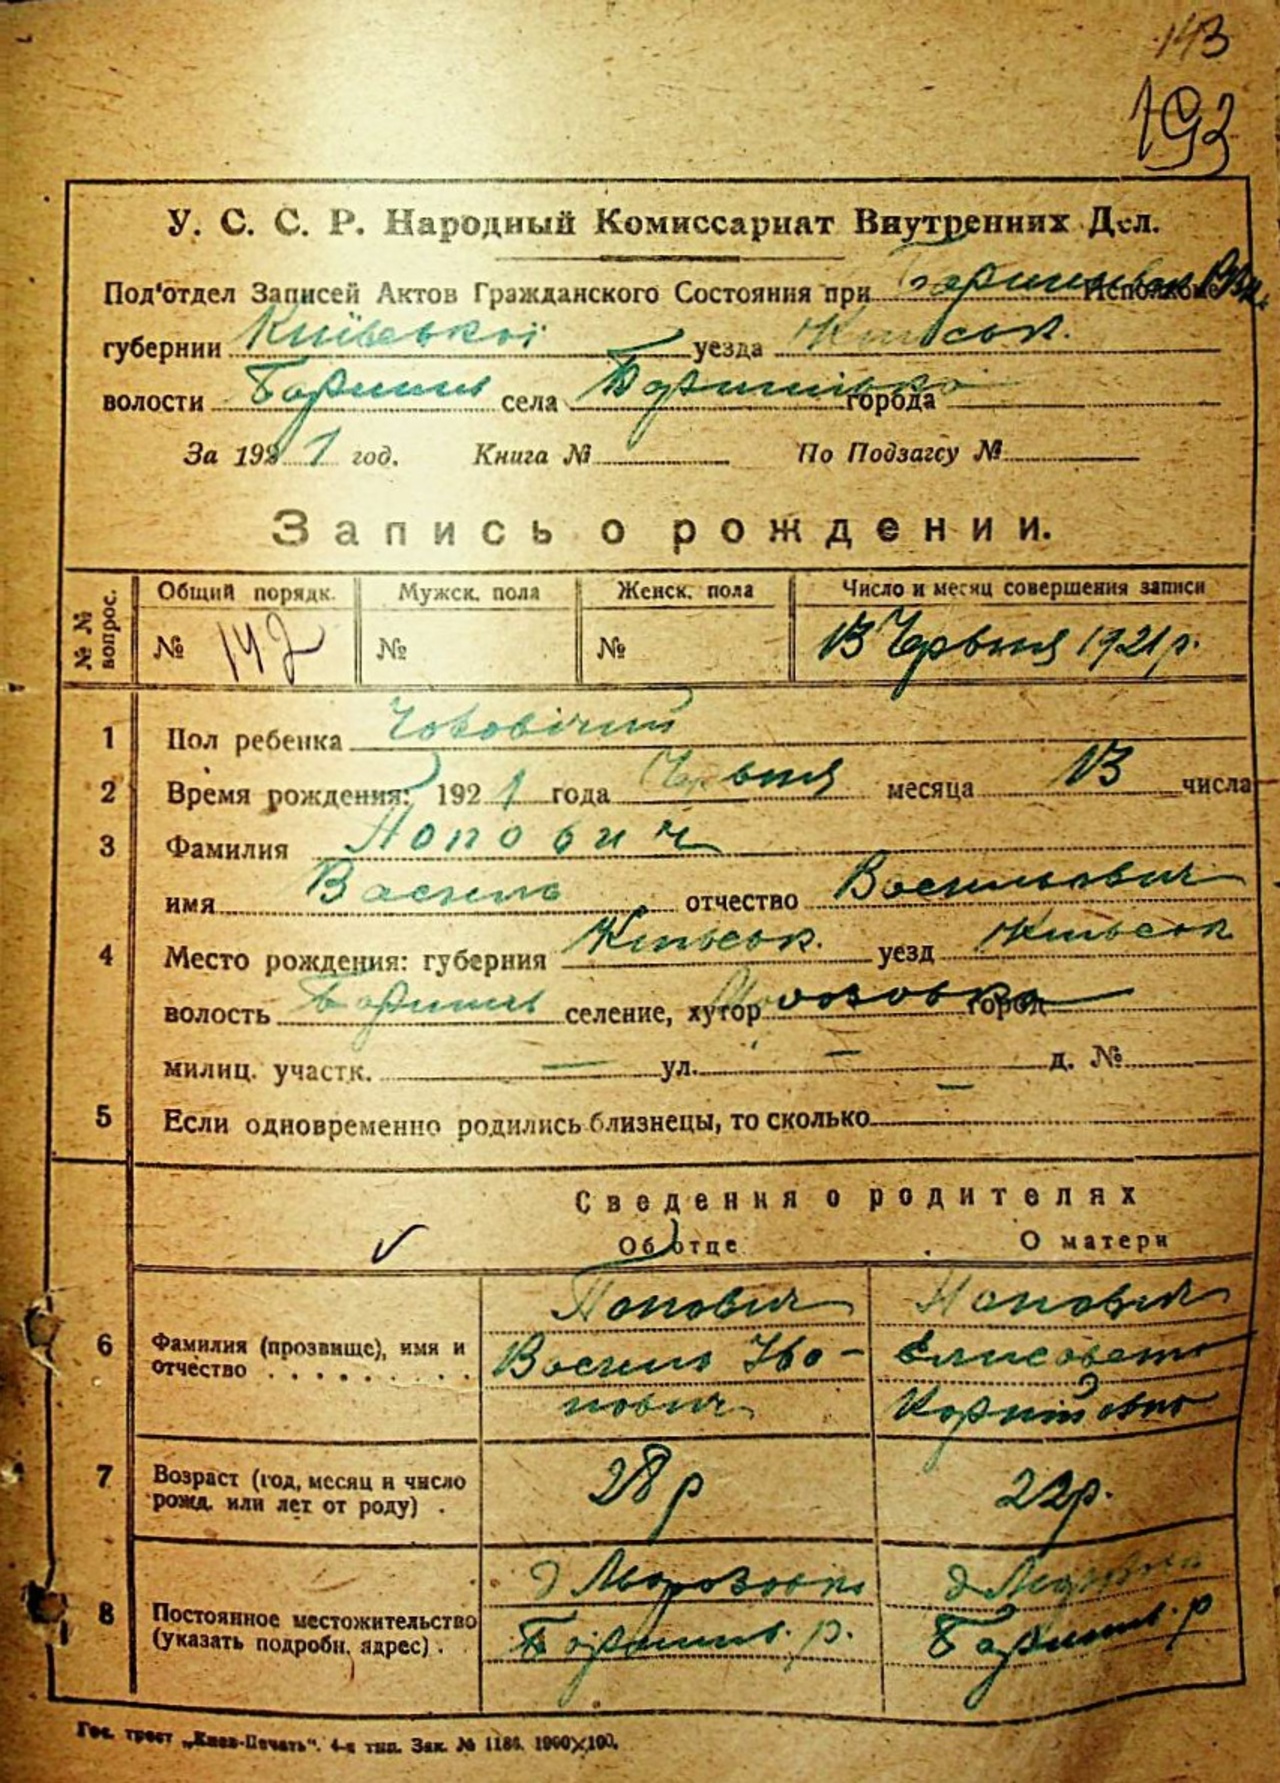 143
193
У. С. С. Р. Народный Комиссариат Внутренних Дел.
Под'отдел Записей Актов Гражданского Состояния при Исполкоме
губернии Київської уезда Київськ.
волости Баришів села Баришівка города
За 1921 год. Книга № По Подзагсу №
Запись о рождении.
№ № вопрос.
Общий порядк. Мужск. пола Женск. пола Число и месяц совершения записи
№ 142 № № 13 Червня 1921 р.
1 Пол ребенка Чоловічий
2 Время рождения: 1921 года Червня месяца 13 числа
3 Фамилия Попович
имя Василь отчество Васильович
4 Место рождения: губерния Київськ. уезд Київськ
волость Баришів селение, хутор Морозовка город
милиц. участк. — ул. — д. №
5 Если одновременно родились близнецы, то сколько —
Сведения о родителях
Об отце О матери
6 Фамилия (прозвище), имя и отчество Попович Василь Іва-нович Попович Елисавета
7 Возраст (год, месяц и число рожд. или лет от роду) 28 р 22 р.
8 Постоянное местожительство (указать подробн. адрес) д Морозовка Баришів. р. д Баришів. р
Гос. трест „Киев-Печать". 4-я тип. Зак. № 1186. 1000×100.